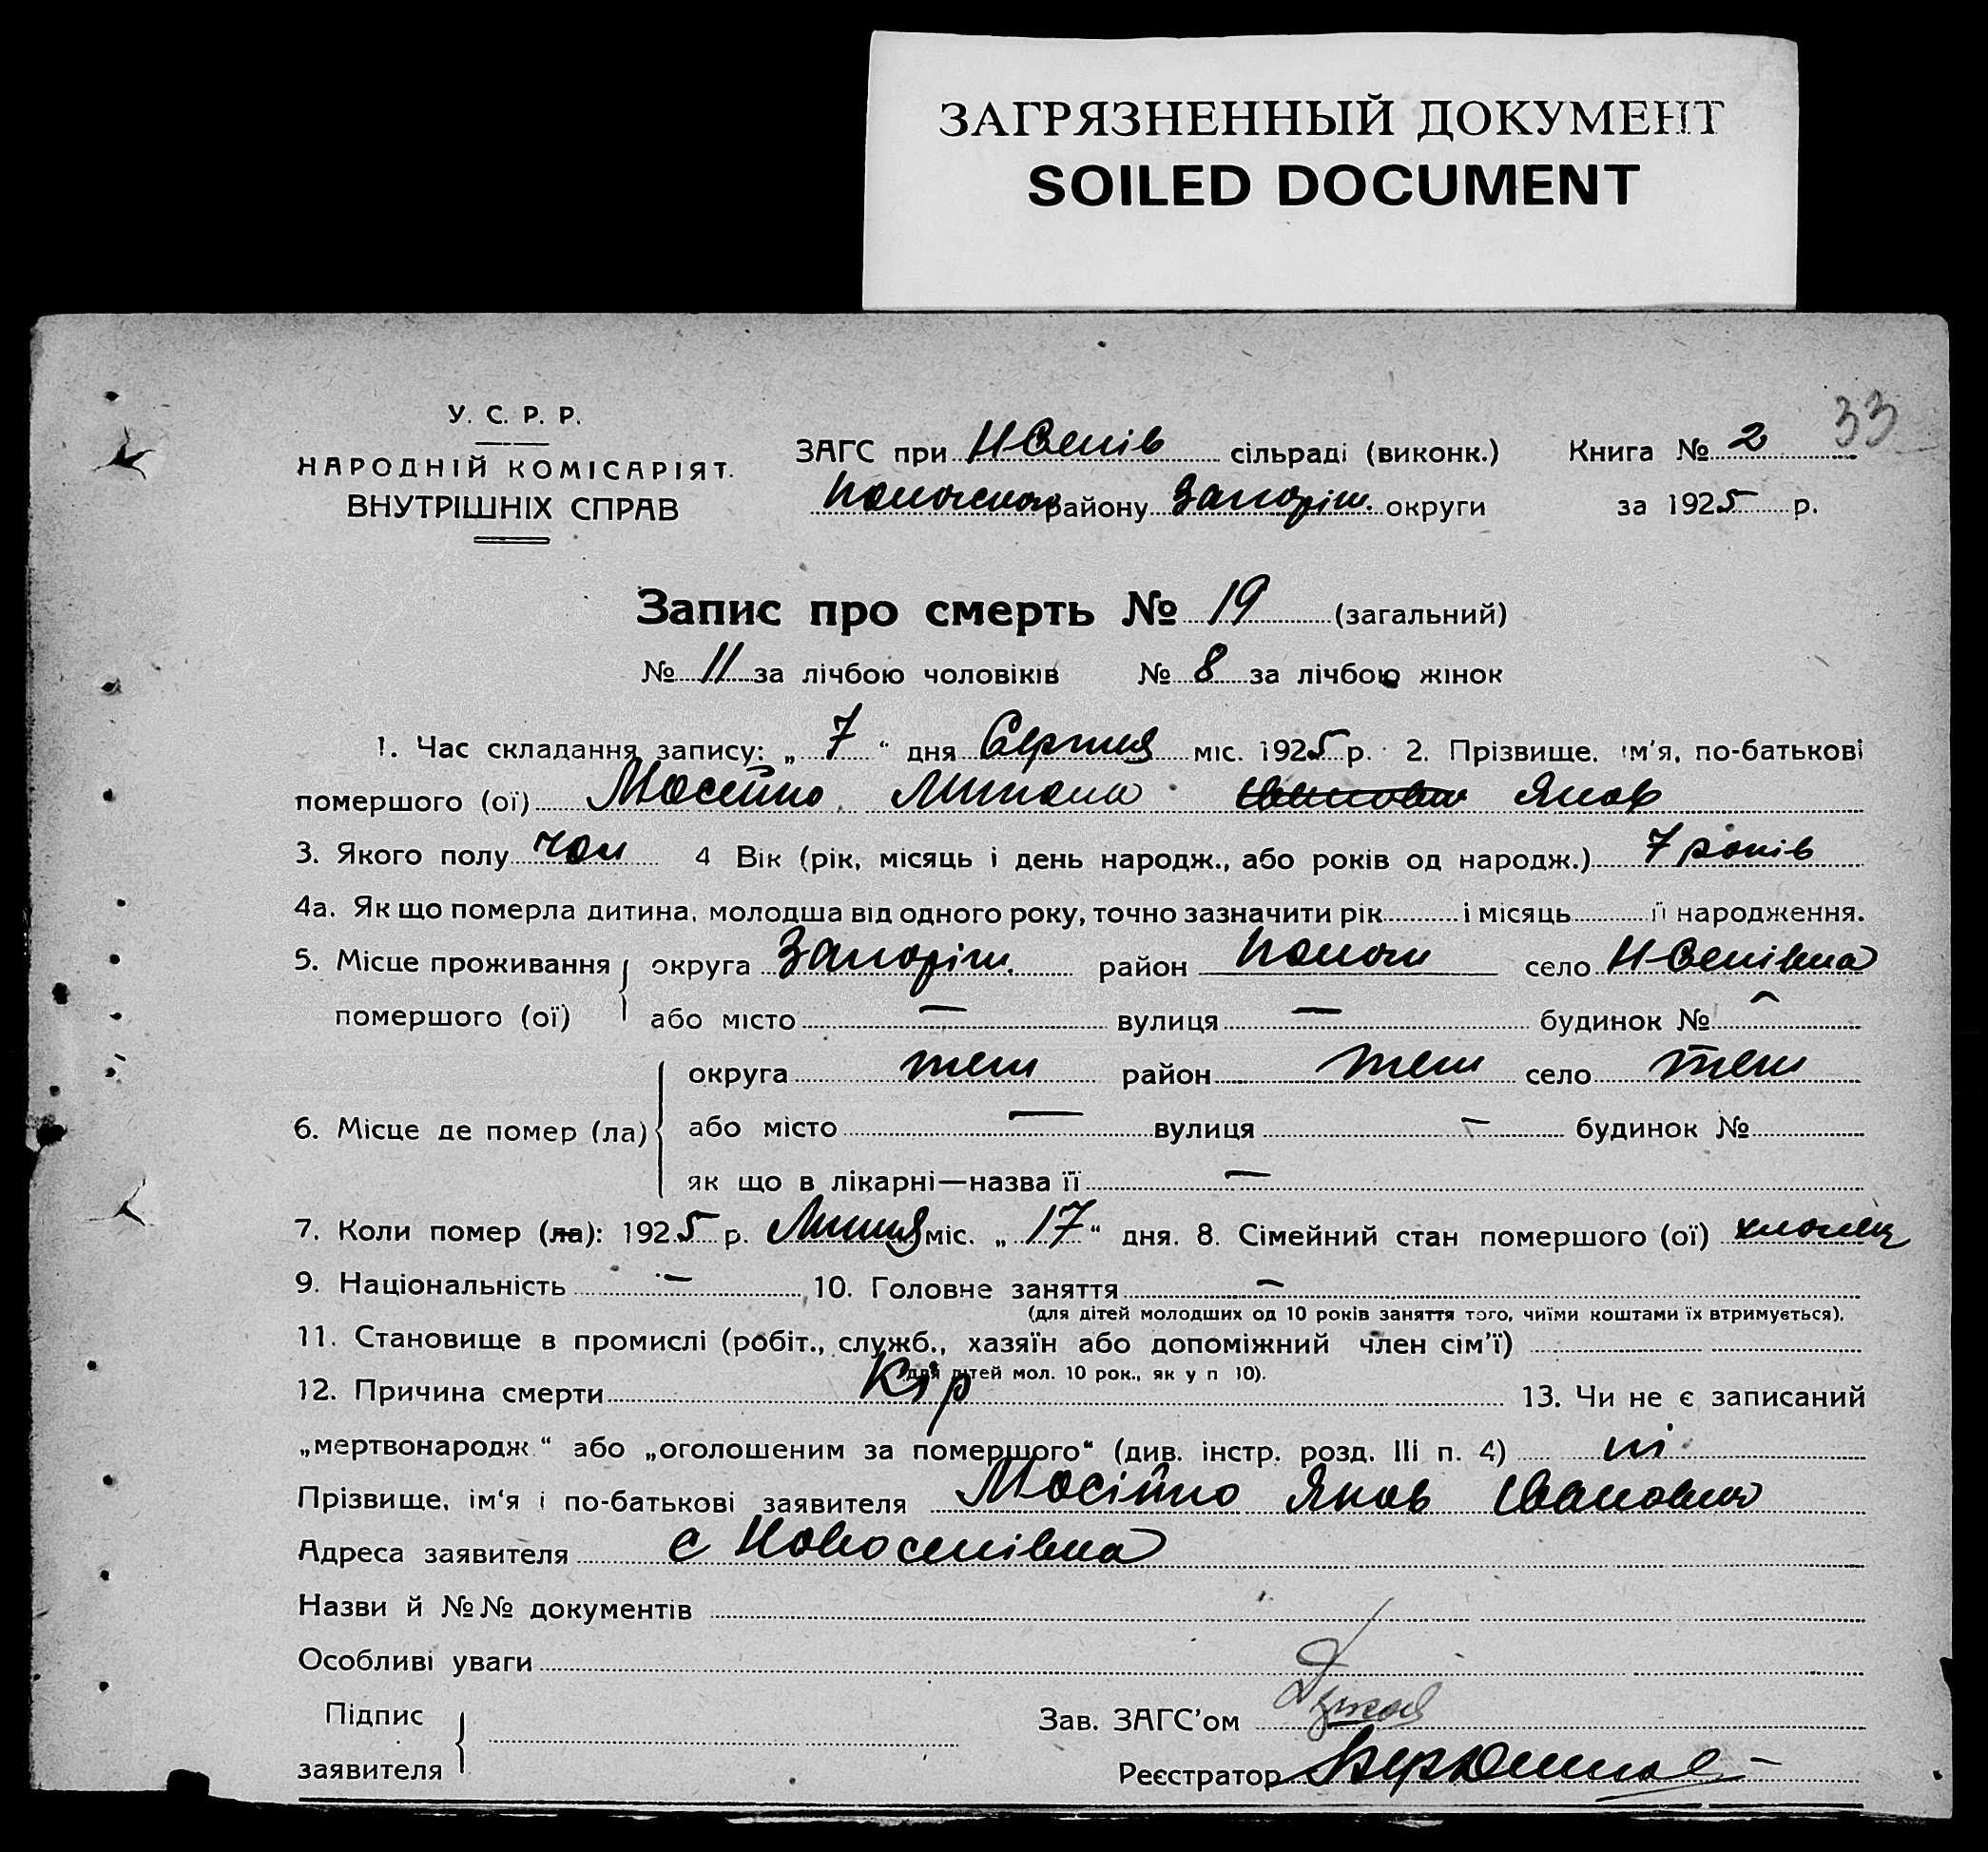 ЗАГРЯЗНЕННЫЙ ДОКУМЕНТ
SOILED DOCUMENT
33
У. С. Р. Р.
НАРОДНІЙ КОМІСАРІЯТ.
ВНУТРІШНІХ СПРАВ
ЗАГС при Н Селів сільраді (виконк.) Книга № 2
району Запоріж. округи за 1925 р.
Запис про смерть № 19 (загальний)
№ 11 за лічбою чоловіків № 8 за лічбою жінок
1. Час складання запису: „ 7 “ дня Серпня міс. 1925 р. 2. Прізвище, ім'я, по-батькові
помершого (ої) Мосейко Яков
3. Якого полу чол 4 Вік (рік, місяць і день народж., або років од народж.) 7 років
4а. Як що померла дитина, молодша від одного року, точно зазначити рік і місяць її народження.
5. Місце проживання округа Запоріж. район село Н Селівка
помершого (ої) або місто — вулиця — будинок № —
округа теж район теж село теж
6. Місце де помер (ла) або місто — вулиця — будинок №
як що в лікарні—назва її —
7. Коли помер (ла): 1925 р. Липня міс. „ 17 “ дня. 8. Сімейний стан помершого (ої) хлопец
9. Національність — 10. Головне заняття —
(для дітей молодших од 10 років заняття того, чиїми коштами їх втримується).
11. Становище в промислі (робіт., служб., хазяїн або допоміжний член сім'ї)
(для дітей мол. 10 рок., як у п 10).
12. Причина смерти Кір 13. Чи не є записаний
„мертвонародж “ або „оголошеним за помершого“ (див. інстр. розд. III п. 4) ні
Прізвище, ім‘я і по-батькові заявителя Мосійко Яков Іванович
Адреса заявителя с Новоселівка
Назви й №№ документів
Особливі уваги
Підпис
заявителя
Зав. ЗАГС'ом
Реєстратор